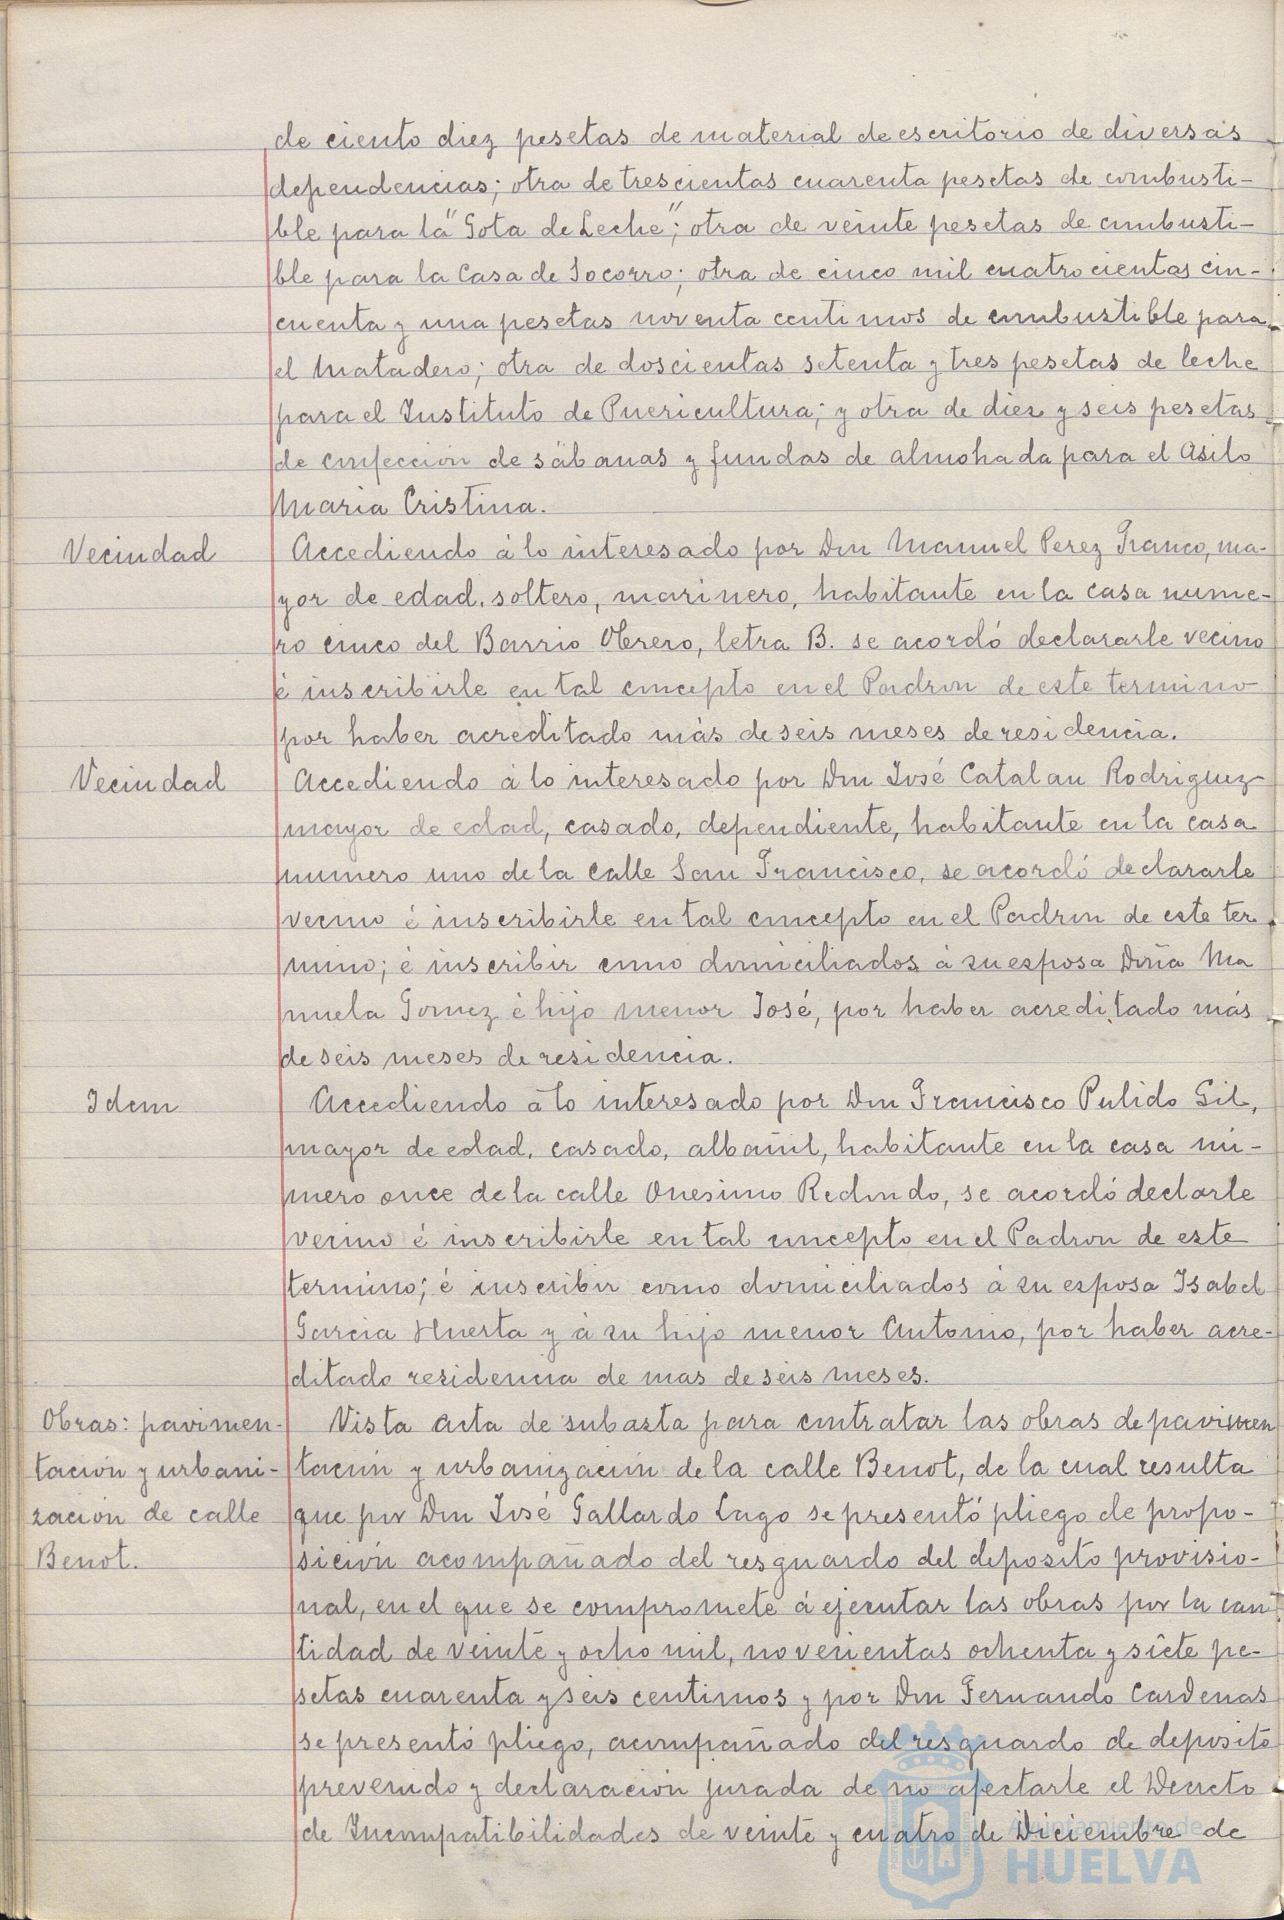 de ciento diez pesetas de material de escritorio de diversas
dependencias; otra de trescientas cuarenta pesetas de combusti-
ble para la "Gota de Leche"; otra de veinte pesetas de combusti-
ble para la Casa de Socorro; otra de cinco mil cuatrocientas cin-
cuenta y una pesetas noventa centimos de combustible para
el Matadero; otra de doscientas setenta y tres pesetas de leche
para el Instituto de Puericultura; y otra de diez y seis pesetas
de confeccion de sábanas y fundas de almohada para el Asilo
Maria Cristina.
Vecindad
Accediendo á lo interesado por Don Manuel Perez Franco, ma-
yor de edad, soltero, marinero, habitante en la casa nume-
ro cinco del Barrio Obrero, letra B. se acordó declararle vecino
é inscribirle en tal concepto en el Padron de este termino
por haber acreditado más de seis meses de residencia.
Vecindad
Accediendo á lo interesado por Don José Catalan Rodriguez
mayor de edad, casado, dependiente, habitante en la casa
numero uno de la calle San Francisco, se acordó declararle
vecino é inscribirle en tal concepto en el Padron de este ter
mino; é inscribir como domiciliados á su esposa Doña Ma
nuela Gomez é hijo menor José, por haber acreditado más
de seis meses de residencia.
Idem
Accediendo á lo interesado por Don Francisco Pulido Gil,
mayor de edad, casado, albañil, habitante en la casa nú-
mero once de la calle Onesimo Redondo, se acordó declarle
vecino é inscribirle en tal concepto en el Padron de este
termino; é inscribir como domiciliados á su esposa Isabel
Garcia Huerta y á su hijo menor Antonio, por haber acre-
ditado residencia de mas de seis meses.
Obras: pavimen-
tación y urbani-
zación de calle
Benot.
Vista acta de subasta para contratar las obras de pavimen
tación y urbanización de la calle Benot, de la cual resulta
que por Don José Gallardo Lago se presentó pliego de propo-
sición acompañado del resguardo del deposito provisio-
nal, en el que se compromete á ejecutar las obras por la can
tidad de veinte y ocho mil, novecientas ochenta y siete pe-
setas cuarenta y seis centimos y por Don Fernando Cardenas
se presentó pliego, acompañado del resguardo de deposito
prevenido y declaración jurada de no afectarle el Decreto
de Incompatibilidades de veinte y cuatro de Diciembre de
Ayuntamiento de
HUELVA